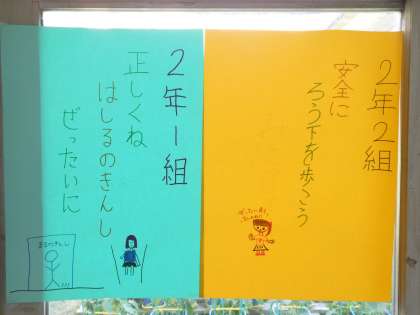 2年2組
安全に
ろう下を歩こう
2年1組
正しくね
はしるのきんし
ぜったいに